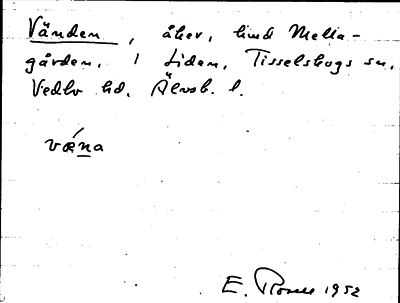 Vänden, åker, hmd Mella-
gården, i Liden, Tisselskogs sn,
Vedbo hd. Älvsb. l.
vǽna
E. Rosell 1952